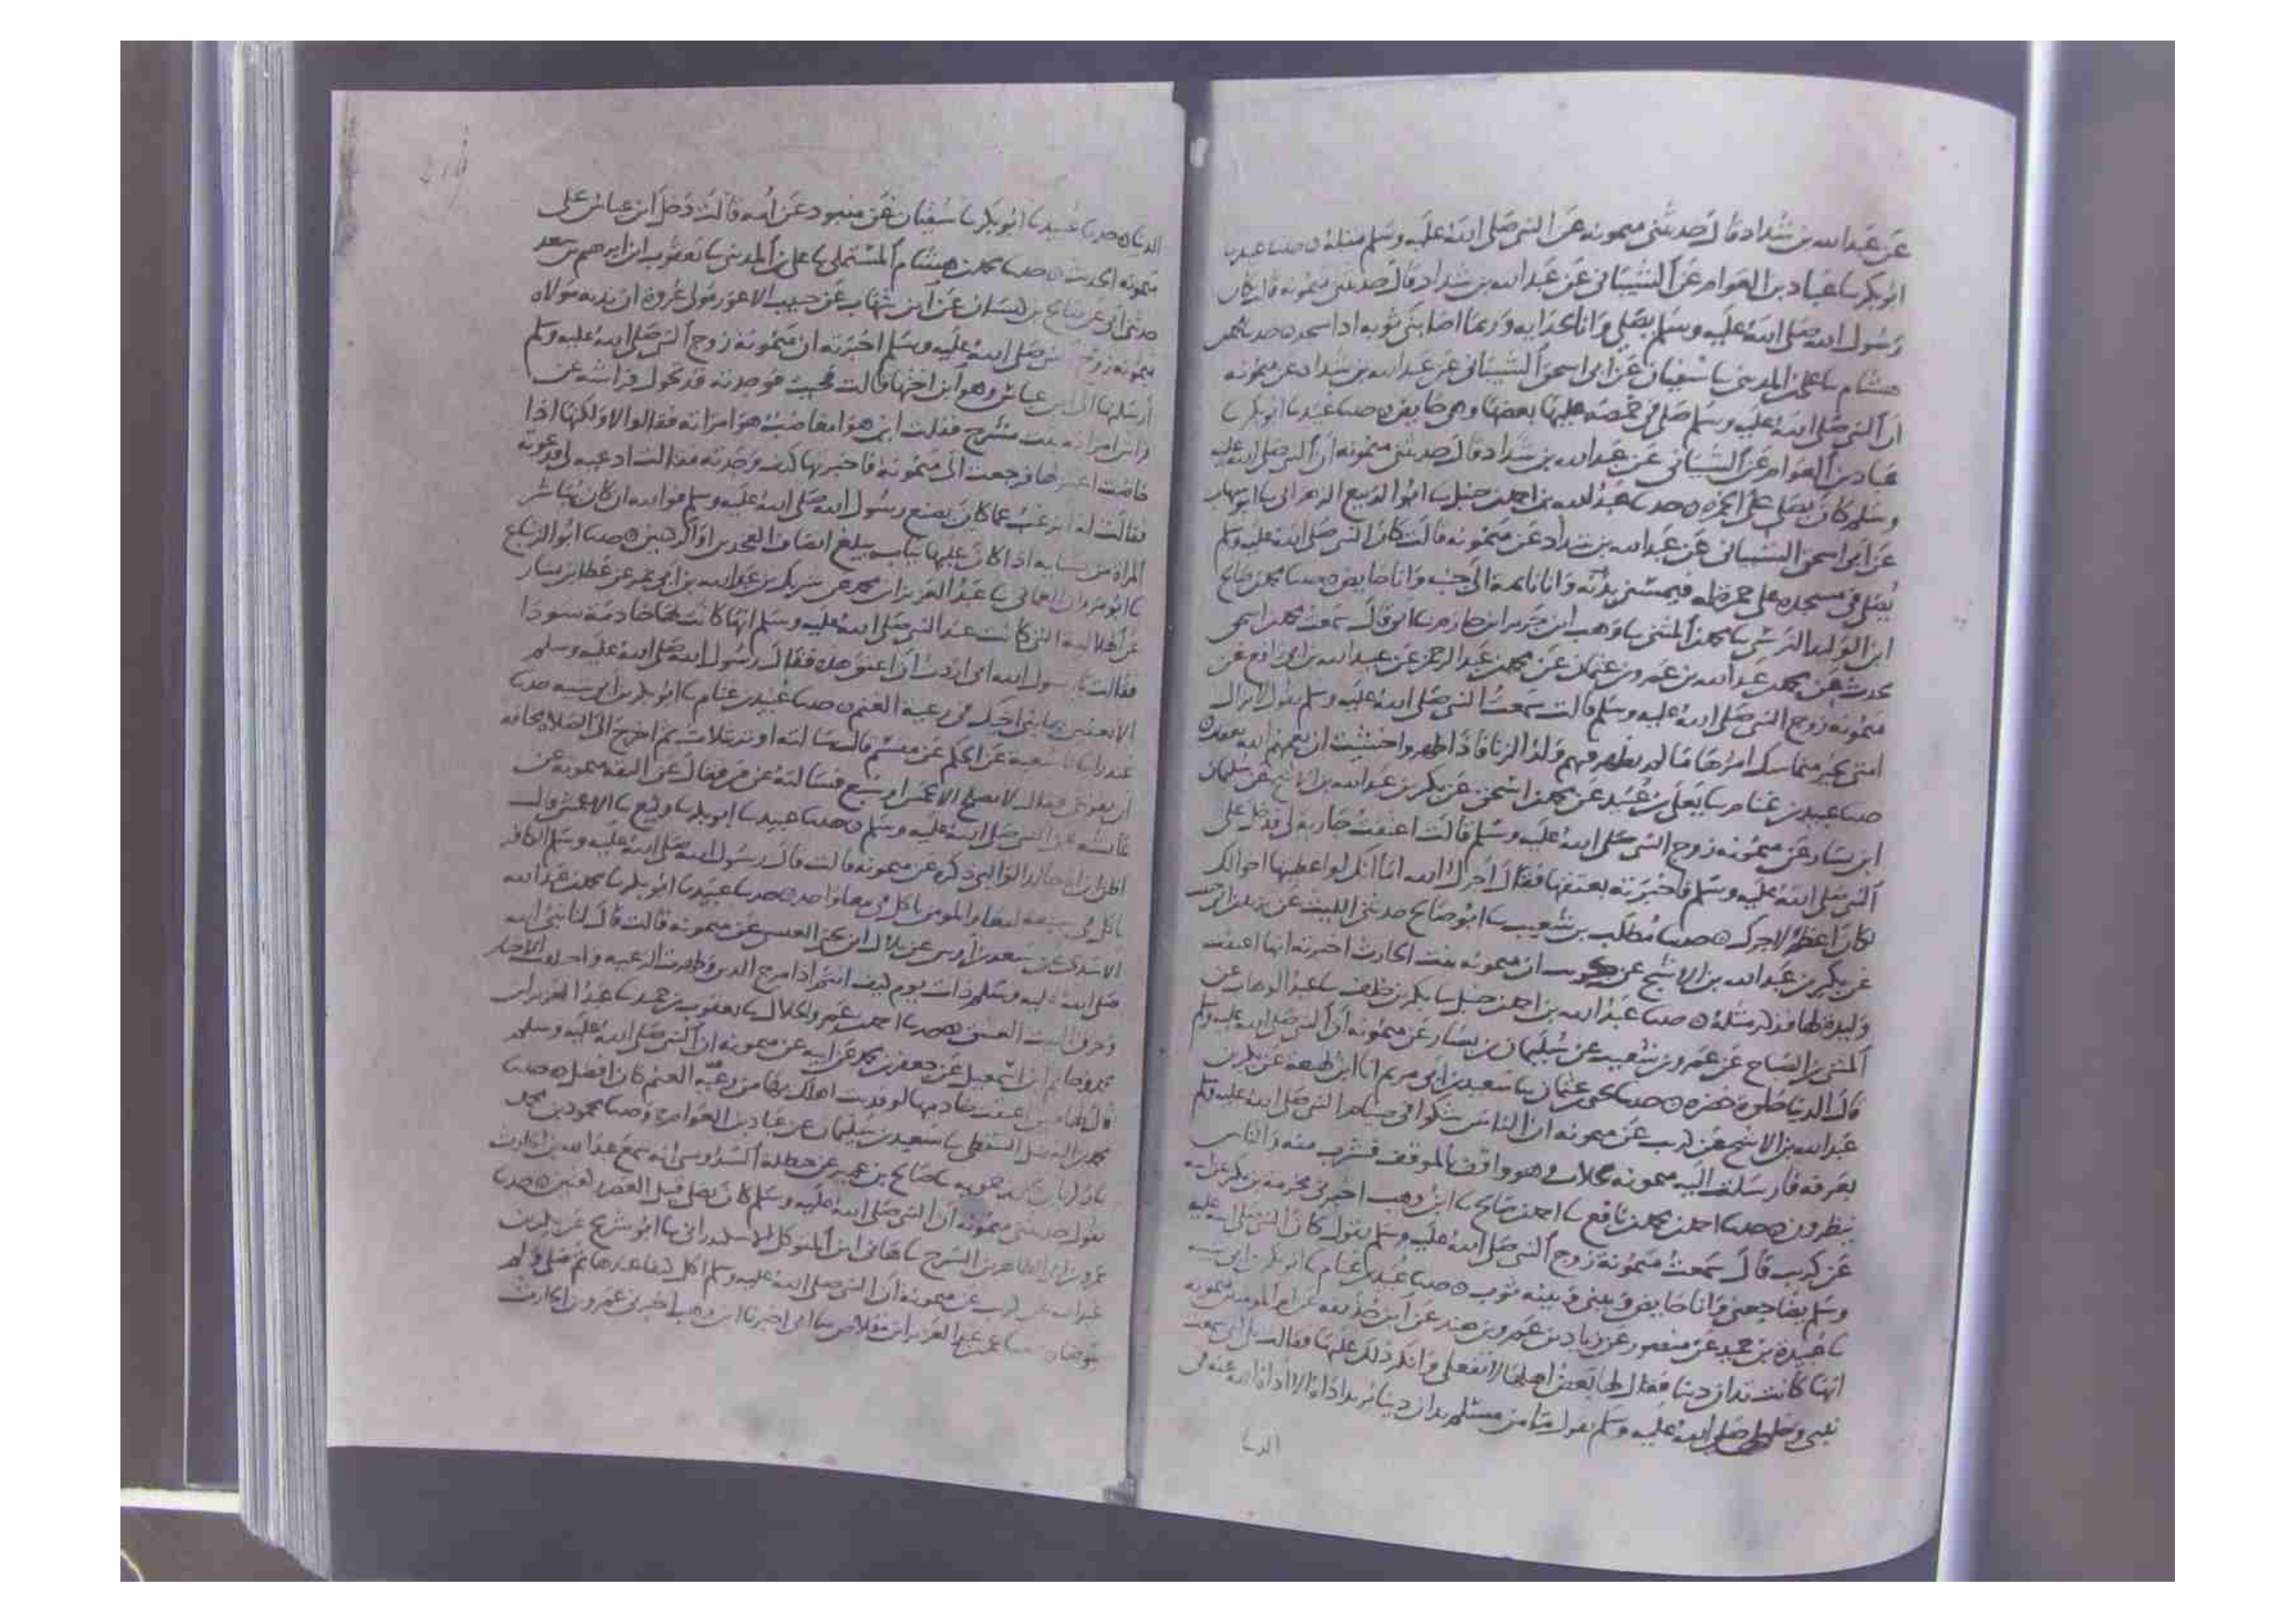 عن عبد الله بن شداد قال حدثتني ميمونه عن النبي صلى الله عليه وسلم مثله ه حدثنا عبيد نا
ابو بكر نا عباد بن العوام عن الشيباني عن عبد الله بن شداد قال حدثتني ميمونه قالت كان
رسول الله صلى الله عليه وسلم يصلي وانا بحذايه وربما اصابني ثوبه اذا سجد ه حدثنا محمد بن
هشام نا علي بن المديني نا سفيان عن ابي اسحق الشيباني عن عبد الله بن شداد عن ميمونه
ان النبي صلى الله عليه وسلم صلى في خمصه عليها بعضها وهي حايض ه حدثنا عبيد نا ابو بكر نا
عباد بن العوام عن الشيباني عن عبد الله بن شداد قال حدثتني ميمونه ان النبي صلى الله عليه
وسلم كان يصلي على الخمره ه حدثنا عبد الله بن احمد بن حنبل نا ابو الربيع الزهراني نا ابو شهاب
عن ابي اسحق الشيباني عن عبد الله بن شداد عن ميمونه قالت كان النبي صلى الله عليه وسلم
يصلي في مسجده على خمرته فيمسني وانا نايمة الى جنبه وانا حايض ه حدثنا محمد بن صالح
ابن الوليد النرسي نا محمد بن المثنى نا وهب ابن جرير ابن حازم نا ابي قال سمعت محمد بن اسحق
يحدث عن محمد بن عبد الله بن عمرو بن عثمان عن محمد بن عبد الرحمن عن عبيد الله بن ابي رافع عن
ميمونه زوج النبي صلى الله عليه وسلم قالت سمعت النبي صلى الله عليه وسلم يقول لا يزال
امتي بخير متماسك امرها ما لم يظهر فيهم ولد الزنا فاذا ظهروا خشيت ان يعمهم الله بعقاب ه
حدثنا عبيد بن غنام نا يعلى بن عبيد عن محمد بن اسحق عن بكير بن عبد الله بن الاشج عن سليمان
ابن يسار عن ميمونه زوج النبي صلى الله عليه وسلم قالت اعتقت جاريه لي فدخل على
النبي صلى الله عليه وسلم فاخبرته بعتقها فقال اجرك الله اما انك لو اعطيتها اخوالك
كان اعظم لاجرك ه حدثنا مطلب بن شعيب نا ابو صالح حدثني الليث عن يزيد بن ابي حبيب
عن بكير بن عبد الله بن الاشج عن كريب ان ميمونه بنت الحارث اخبرته انها اعتقت
وليدة لها فذكر مثله ه حدثنا عبد الله بن احمد بن حنبل نا بكر بن خلف نا عبد الوهاب عن
المثنى بن الصباح عن عمرو بن شعيب عن سليمان بن يسار عن ميمونه ان النبي صلى الله عليه وسلم
قال الدنيا حلوة خضره ه حدثنا يحيى بن عثمان نا سعيد بن ابي مريم انا ابن لهيعة عن بكير بن
عبد الله بن الاشج عن كريب عن ميمونه ان الناس شكوا في صيام النبي صلى الله عليه وسلم
بعرفه فارسلت اليه ميمونه بحلاب وهو واقف بالموقف فشرب منه والناس
ينظرون ه حدثنا احمد بن محمد بن نافع نا احمد بن صالح نا ابن وهب اخبرني مخرمة بن بكير عن ابيه
عن كريب قال سمعت ميمونة زوج النبي صلى الله عليه وسلم يقول كان النبي صلى الله عليه
وسلم يضاجعني وانا حايض وبيني وبينه ثوب ه حدثنا عبيد بن غنام نا ابو بكر بن ابي شيبه
نا عبيدة بن حميد عن منصور عن زياد بن عمرو بن هند عن ابن حذيفه عن ام المومنين ميمونه
انها كانت تدان دينا فقال لها بعض اهلها لا تفعلي وانكر ذلك عليها فقالت بلى اني سمعت
نبيي وخليلي صلى الله عليه وسلم يقول ما من مسلم يدان دينا يريد اداه الا اداه الله عنه في
الدنيا
الدنيا ه حدثنا عبيد نا ابو بكر نا سفيان عن منبوذ عن امه قالت دخل ابن عباس على
ميمونه الحديث ه حدثنا محمد بن هشام المستملي نا علي بن المديني نا يعقوب ابن ابرهيم بن سعد
حدثني ابي عن صالح بن كيسان عن ابن شهاب عن حبيب الاعور مولى عروة ان ندبه مولاه
ميمونه زوج النبي صلى الله عليه وسلم اخبرته ان ميمونة زوج النبي صلى الله عليه وسلم
ارسلتها الى ابن عباس وهو ابن اختها قالت فجيت فوجدته قد تحول فراشه عن
فراش امراته بنت مشرح فقلت ابن هو امغاضب هو امراته فقالوا لا ولكنها اذا
حاضت اعتزلها فرجعت الى ميمونة فاخبرتها كيف وجدته فقالت ادعيه لي فدعوته
فقالت له اترغب عما كان يصنع رسول الله صلى الله عليه وسلم فوالله ان كان يباشر
المراه من نسايه اذا كان عليها ثياب يبلغ انصاف الفخذين او الركبتين ه حدثنا ابو الزنباع
نا ابو مروان العثماني نا عبد العزيز ابن محمد عن شريك بن عبد الله بن ابي نمر عن عطا بن يسار
عن الهلاليه التي كانت عند النبي صلى الله عليه وسلم انها كانت لها خادمة سودا
فقالت يا رسول الله اني اردت ان اعتق هذه فقال رسول الله صلى الله عليه وسلم
الا تفدين بها بني اخيك من رعية الغنم ه حدثنا عبيد بن غنام نا ابو بكر بن ابي شيبه حدثنا
غندر نا شعبة عن الحكم عن مقسم قال سالته اوتر بثلاث ثم اخرج الى الصلاه مخافه
ان يفوتني فقال لا يصلح الا بخمس او سبع فسالته عن من فقال عن الثقه عن ميمونه عن
عائشه عن النبي صلى الله عليه وسلم ه حدثنا عبيد نا ابو بكر نا وكيع نا الاعمش قال
اظن ابا خالد الوالبي ذكره عن ميمونه قالت قال رسول الله صلى الله عليه وسلم الكافر
ياكل في سبعة امعا والمومن ياكل في معا واحد ه حدثنا عبيد نا ابو بكر نا محمد بن عبد الله
الاسدي عن سعد بن اوس عن بلال ابن يحيى العبسي عن ميمونه قالت قال لنا نبي الله
صلى الله عليه وسلم ذات يوم كيف انتم اذا مرج الدين وظهرت الرغبه واختلفت الاخبار
وحرق البيت العتيق ه حدثنا احمد بن عمرو الخلال نا يعقوب بن حميد نا عبد العزيز ابن
محمد وحاتم ابن اسمعيل عن جعفر بن محمد عن ابيه عن ميمونه ان النبي صلى الله عليه وسلم
قال لها حين اعتقت خادمها لو فديت اهلك بها من رعية الغنم كان افضل ه حدثنا
محمد بن الفضل السقطي نا سعيد بن سليمان عن عباد بن العوام ه وحدثنا محمود بن محمد
نا زكريا بن يحيى زحمويه نا صالح بن عمر عن حنظلة السدوسي انه سمع عبد الله بن الحارث
يقول حدثتني ميمونه ان النبي صلى الله عليه وسلم كان يصلي قبل العصر ركعتين ه حدثنا
عمرو بن ابي الطاهر بن السرح نا هاني ابن المتوكل الاسكندراني نا ابو شريح عن بكير بن
عبد الله عن كريب عن ميمونه ان النبي صلى الله عليه وسلم اكل كتفا عندها ثم صلى ولم
يتوضا ه حدثنا عمر بن عبد العزيز ابن مقلاص نا ابي اخبرنا ابن وهب اخبرني عمرو بن الحارث